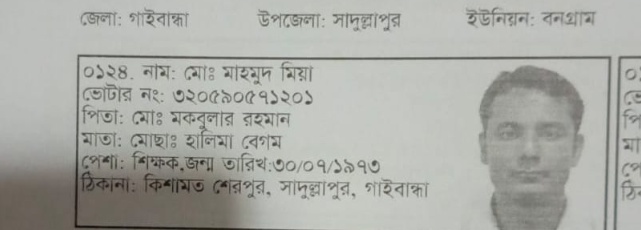 জেলা: গাইবান্ধা উপজেলা: সাদুল্লাপুর ইউনিয়ন: বনগ্রাম
০১২৪. নাম: মোঃ মাহমুদ মিয়া
ভোটার নং: ৩২০৫৯০৫৭১২০১
পিতা: মোঃ মকবুলার রহমান
মাতা: মোছাঃ হালিমা বেগম
পেশা: শিক্ষক,জন্ম তারিখ:৩০/০৭/১৯৭৩
ঠিকানা: কিশামত শেরপুর, সাদুল্লাপুর, গাইবান্ধা